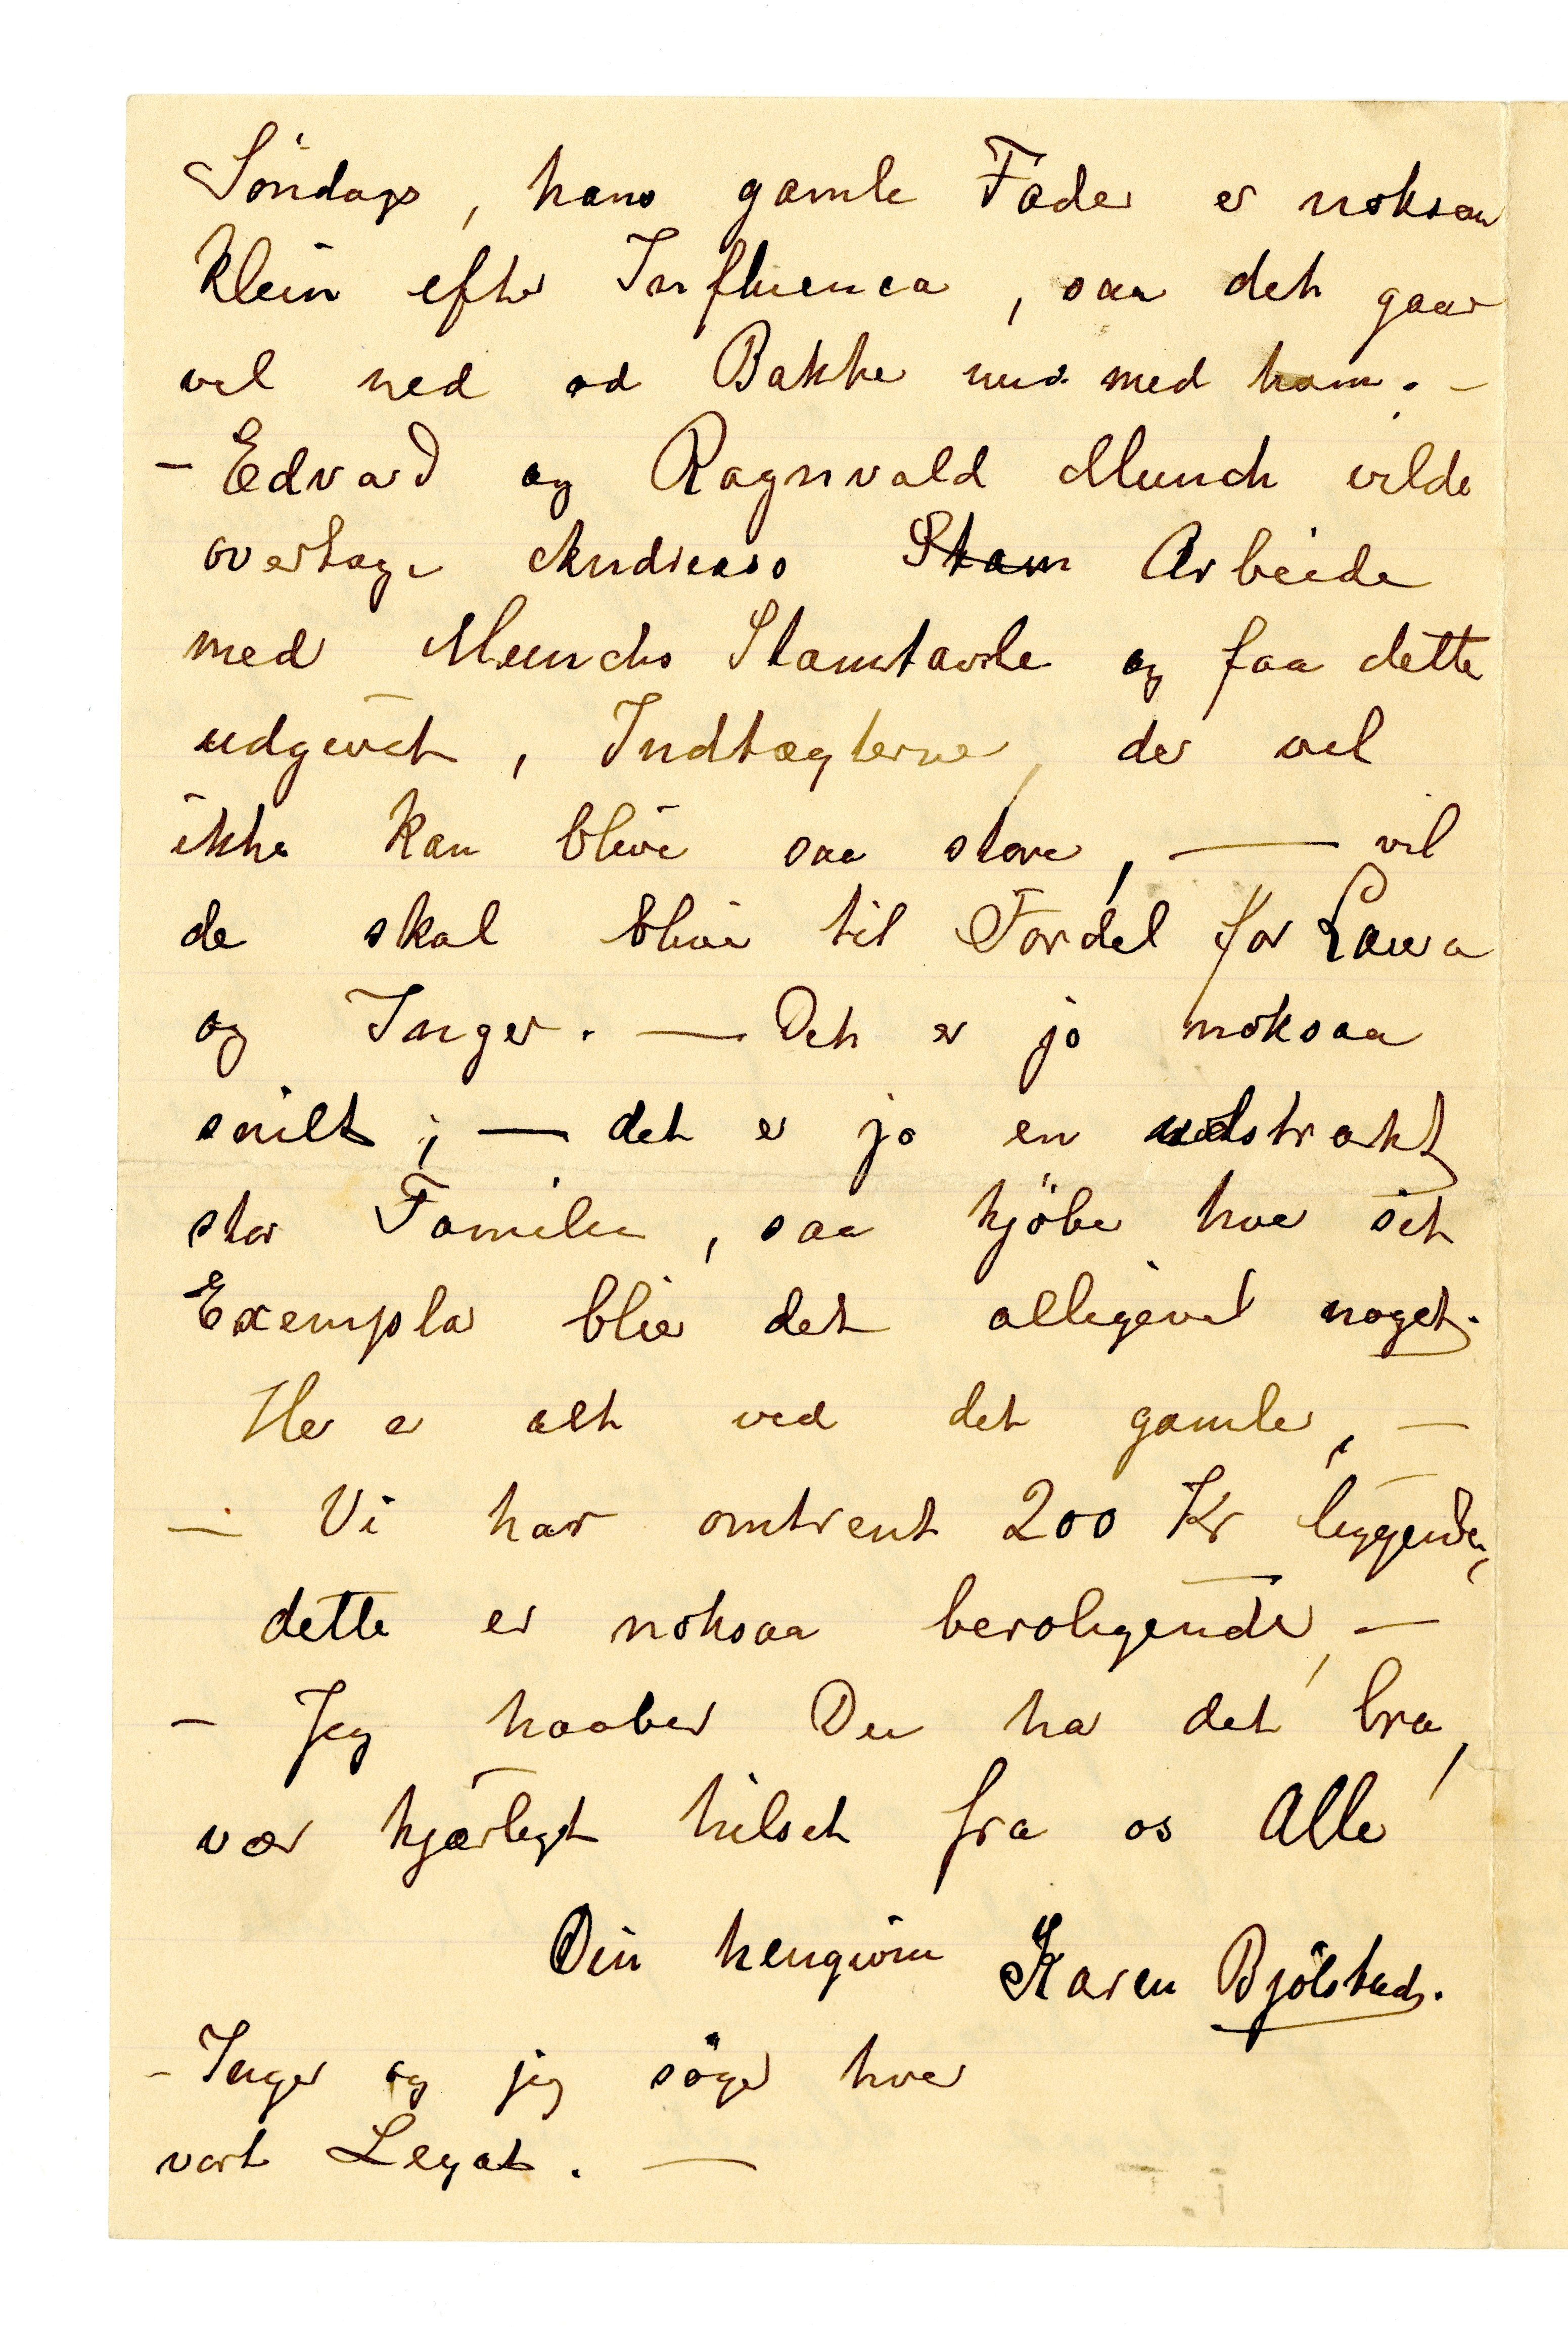 Söndags, hans gamle Fader er noksaa
klein efter Influenca, saa det gaar
vel ned ad Bakke nu med ham. –
– Edvard og Ragnvald Munch vilde
overtage Andreass Stam Arbeide
med Munchs Stamtavle og faa dette
udgivet, Indtægterne, der vel
ikke kan blive saa store, — vil
de skal blive til Fordel for Laura
og Inger. — Det er jo noksaa
snilt; — det er jo en udstrakt
stor Familie, saa kjöber hver sit
Exemplar blir det alligevel noget.
Her er alt ved det gamle, –
– Vi har omtrent 200 Kr liggende,
dette er noksaa beroligende, –
– Jeg haaber Du har det bra,
vær kjærligst hilset fra os Alle
Din hengivne Karen Bjölstad.
– Inger og jeg söger hver
vort Legat. —